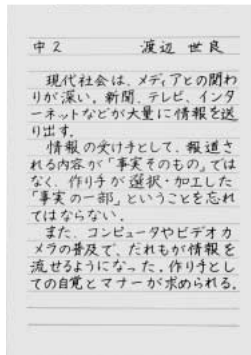 中2 渡辺 世良
現代社会は、メディアとの関わ
りが深い。新聞、テレビ、インタ
ーネットなどが大量に情報を送
り出す。
情報の受け手として、報道さ
れる内容が「事実そのもの」では
なく、作り手が選択・加工した
「事実の一部」ということを忘れ
てはならない。
また、コンピュータやビデオカ
メラの普及で、だれもが情報を
流せるようになった。作り手とし
ての自覚とマナーが求められる。